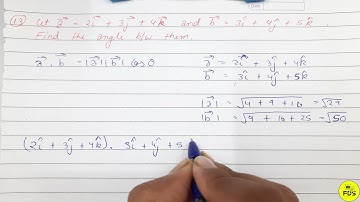 (13) Let a⃗ = 2î + 3ĵ + 4k̂ and b⃗ = 3î + 4ĵ + 5k̂.
Find the angle b/w them.
a⃗ . b⃗ = |a⃗| |b⃗| cos θ
a⃗ = 2î + 3ĵ + 4k̂
b⃗ = 3î + 4ĵ + 5k̂
|a⃗| = √4 + 9 + 16 = √29
|b⃗| = √9 + 16 + 25 = √50
(2î + 3ĵ + 4k̂). 3î + 4ĵ + 5
FDS